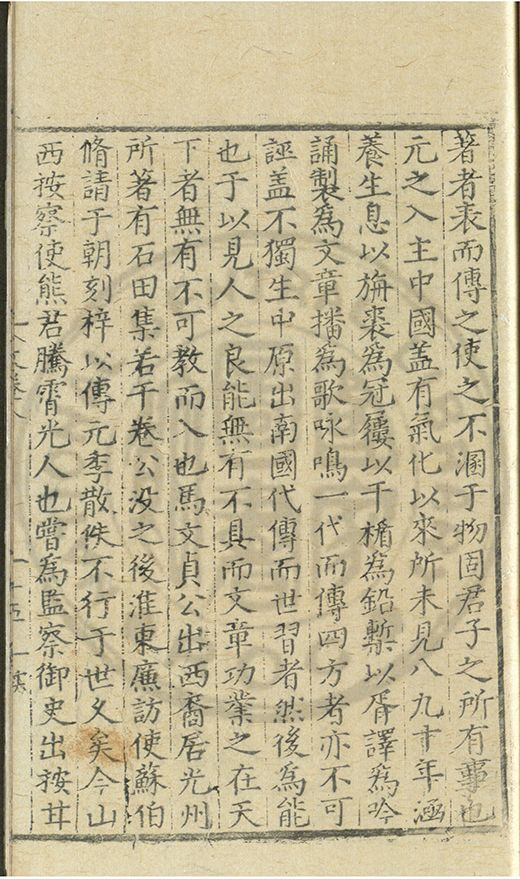 著者表而傳之使之不溷于物固君子之所有事也
元之入主中國盖有氣化以來所未見八九十年涵
養生息以旃裘為冠屨以干楯為鉛槧以胥譯為吟
誦製為文章播為歌咏鳴一代而傳四方者亦不可
誣盖不獨生中原出南國代傳而世習者然後為能
也于以見人之良能無有不具而文章功業之在天
下者無有不可教而入也馬文貞公出西裔居光州
所著有石田集若干卷公没之後淮東廉訪使蘇伯
脩請于朝刻梓以傳元季散佚不行于世久矣今山
西按察使熊君騰霄光人也嘗為監察御史出按甘
文卷八
十五